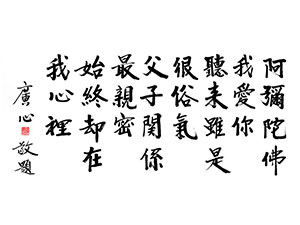 阿彌陀佛
我愛你
聽来雖是
很俗氣
父子関係
最親密
始終却在
我心裡
廣心敬題